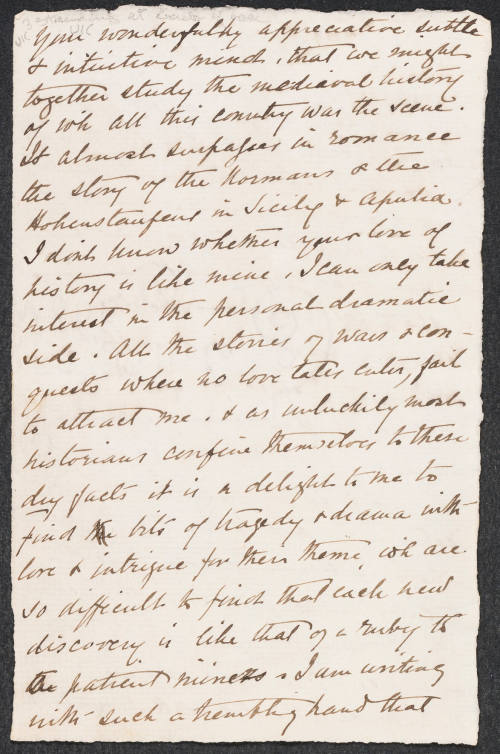 Your wonderfully appreciative subtle
& intuitive mind, that we might
together study the mediaeval history
of wh all this country was the scene.
It almost surpasses in romance
the story of the Normans & the
Hohenstaufens in Sicily & Apulia.
I dont know whether your love of
history is like mine, I can only take
interest in the personal dramatic
side. All the stories of wars & con-
quests where no love tales enter, fail
to attract me. & as unluckily most
historians confine themselves to these
dry facts it is a delight to me to
find the bits of tragedy & drama with
love & intrigue for their theme, wh are
so difficult to find that each new
discovery is like that of a ruby to
the patient miners. I am writing
with such a trembling hand that